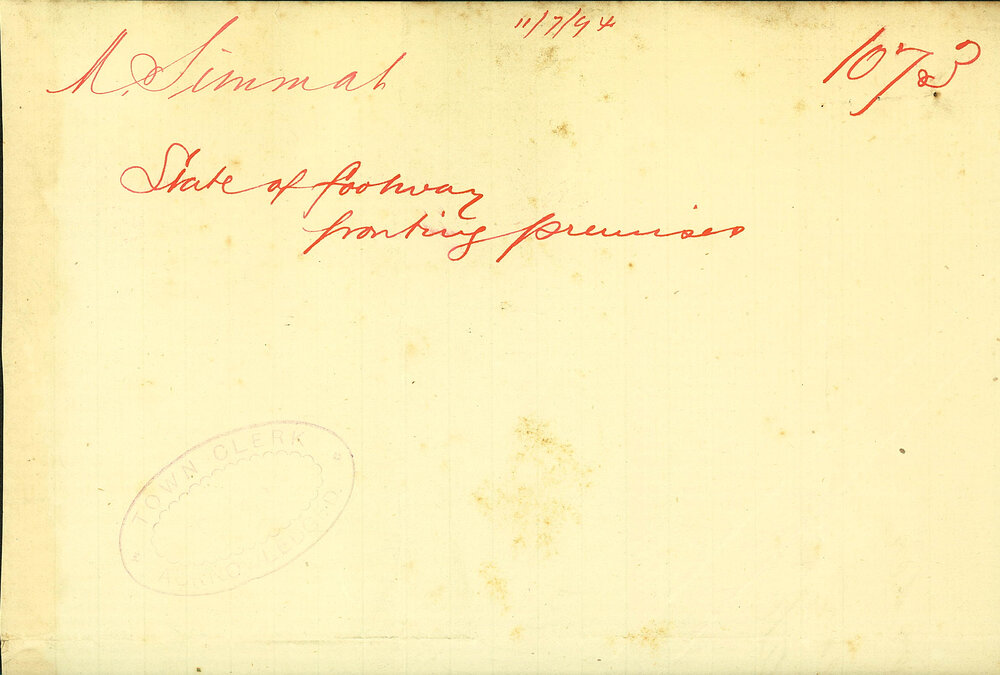 11/7/94
M. Simmat
1073
State of footway
fronting premises
TOWN CLERK
ACKNOWLEDG'D